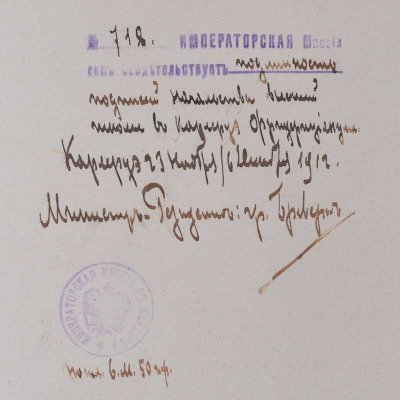 № 718. ИМПЕРАТОРСКАЯ Миссія
симъ свидѣтельствуетъ подлинность
подписей начальства высшей
школы въ Карлсруэ Фридерициана.
Карлсруэ 23 Ноября/6 Декабря 1912.
Министръ-Резидентъ: гр. Бреверъ
ИМПЕРАТОРСКАЯ МИССІЯ ВЪ
6 м. 50 пф.